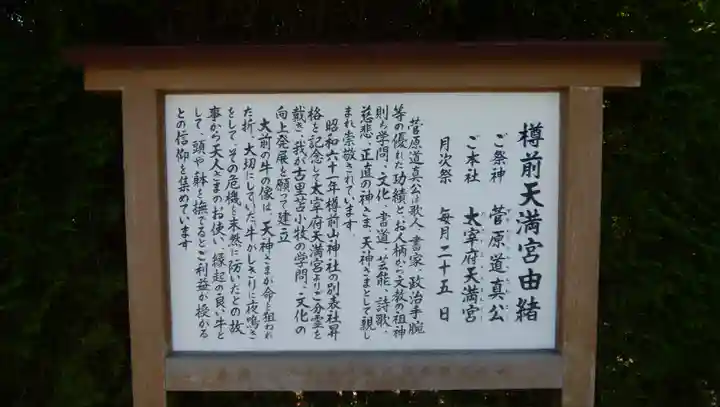 樽前天満宮由緒
ご祭神 菅原道真公
ご本社 太宰府天満宮
月次祭 毎月二十五日
菅原道真公は歌人、書家、政治手腕
等の優れた功績と、お人柄から文教の祖神
則ち学問、文化、書道、芸能、詩歌、
慈悲、正直の神さま、天神さまとして親し
まれ崇敬されています。
昭和六十一年樽前山神社の別表社昇
格を記念して太宰府天満宮よりご分霊を
戴き、我が古里苫小牧の学問、文化の
向上発展を願って建立
大前の牛の像は、天神さまが命を狙われ
た折、大切にしていた牛がしきりに夜鳴き
をして、その危機を未然に防いだとの故
事から天神さまのお使い、縁起の良い牛と
して、頭や躰を撫でるとご利益が授かる
との信仰を集めています